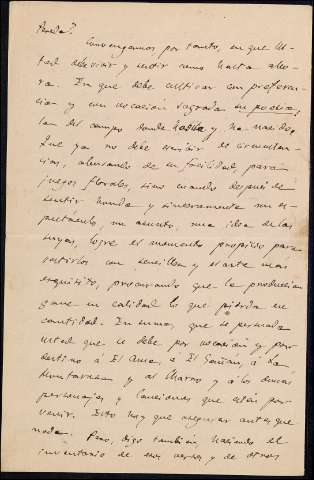 Pereda?
Convengamos por tanto, en que Us-
ted debe vivir y sentir como hasta aho-
ra. En que debe cultivar con preferen-
cia y con vocación sagrada su poesía,
la del campo donde habita y ha nacido.
Que ya no debe escribir de circunstan-
cias, abusando de su facilidad, para
juegos florales, sino cuando después de
sentir honda y sinceramente un es-
pectáculo, un asunto, una idea de las
suyas, logre el momento propicio para
vertirlos con sencillez y el arte más
exquisito, procurando que la producción
gane en calidad lo que pierda en
cantidad. En suma, que se persuada
usted que se debe por vocación y por
destino á El Ama, á El Gañán, á La
Montaraza y al Marzo y á los demás
personajes y canciones que están por
venir. Esto hay que asegurar antes que
nada. Pero, digo también, haciendo el
inventario de esos versos y de otros